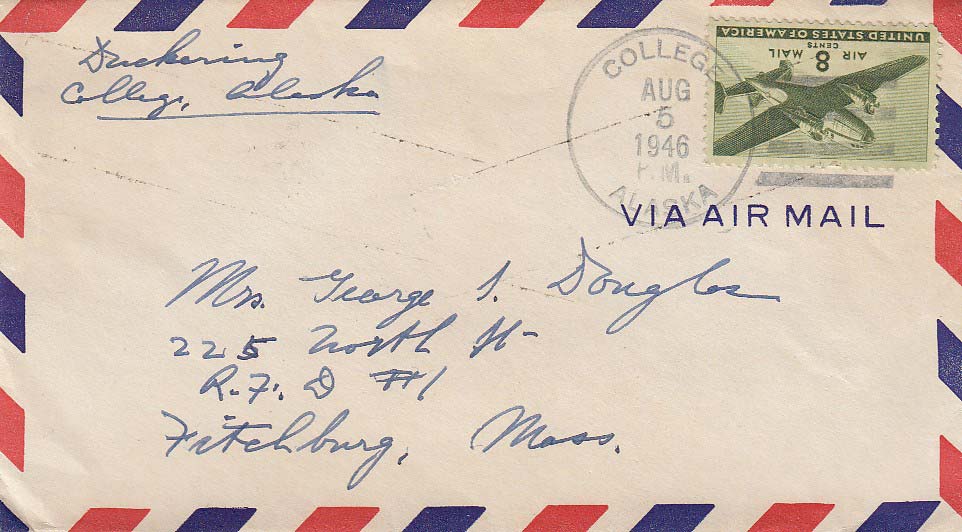 Duckering
College, Alaska
COLLEGE
AUG
5
1946
P.M.
ALASKA
UNITED STATES OF AMERICA
AIR MAIL
8 CENTS
VIA AIR MAIL
Mrs. George S. Douglas
225 North St
R.F.D #1
Fitchburg, Mass.